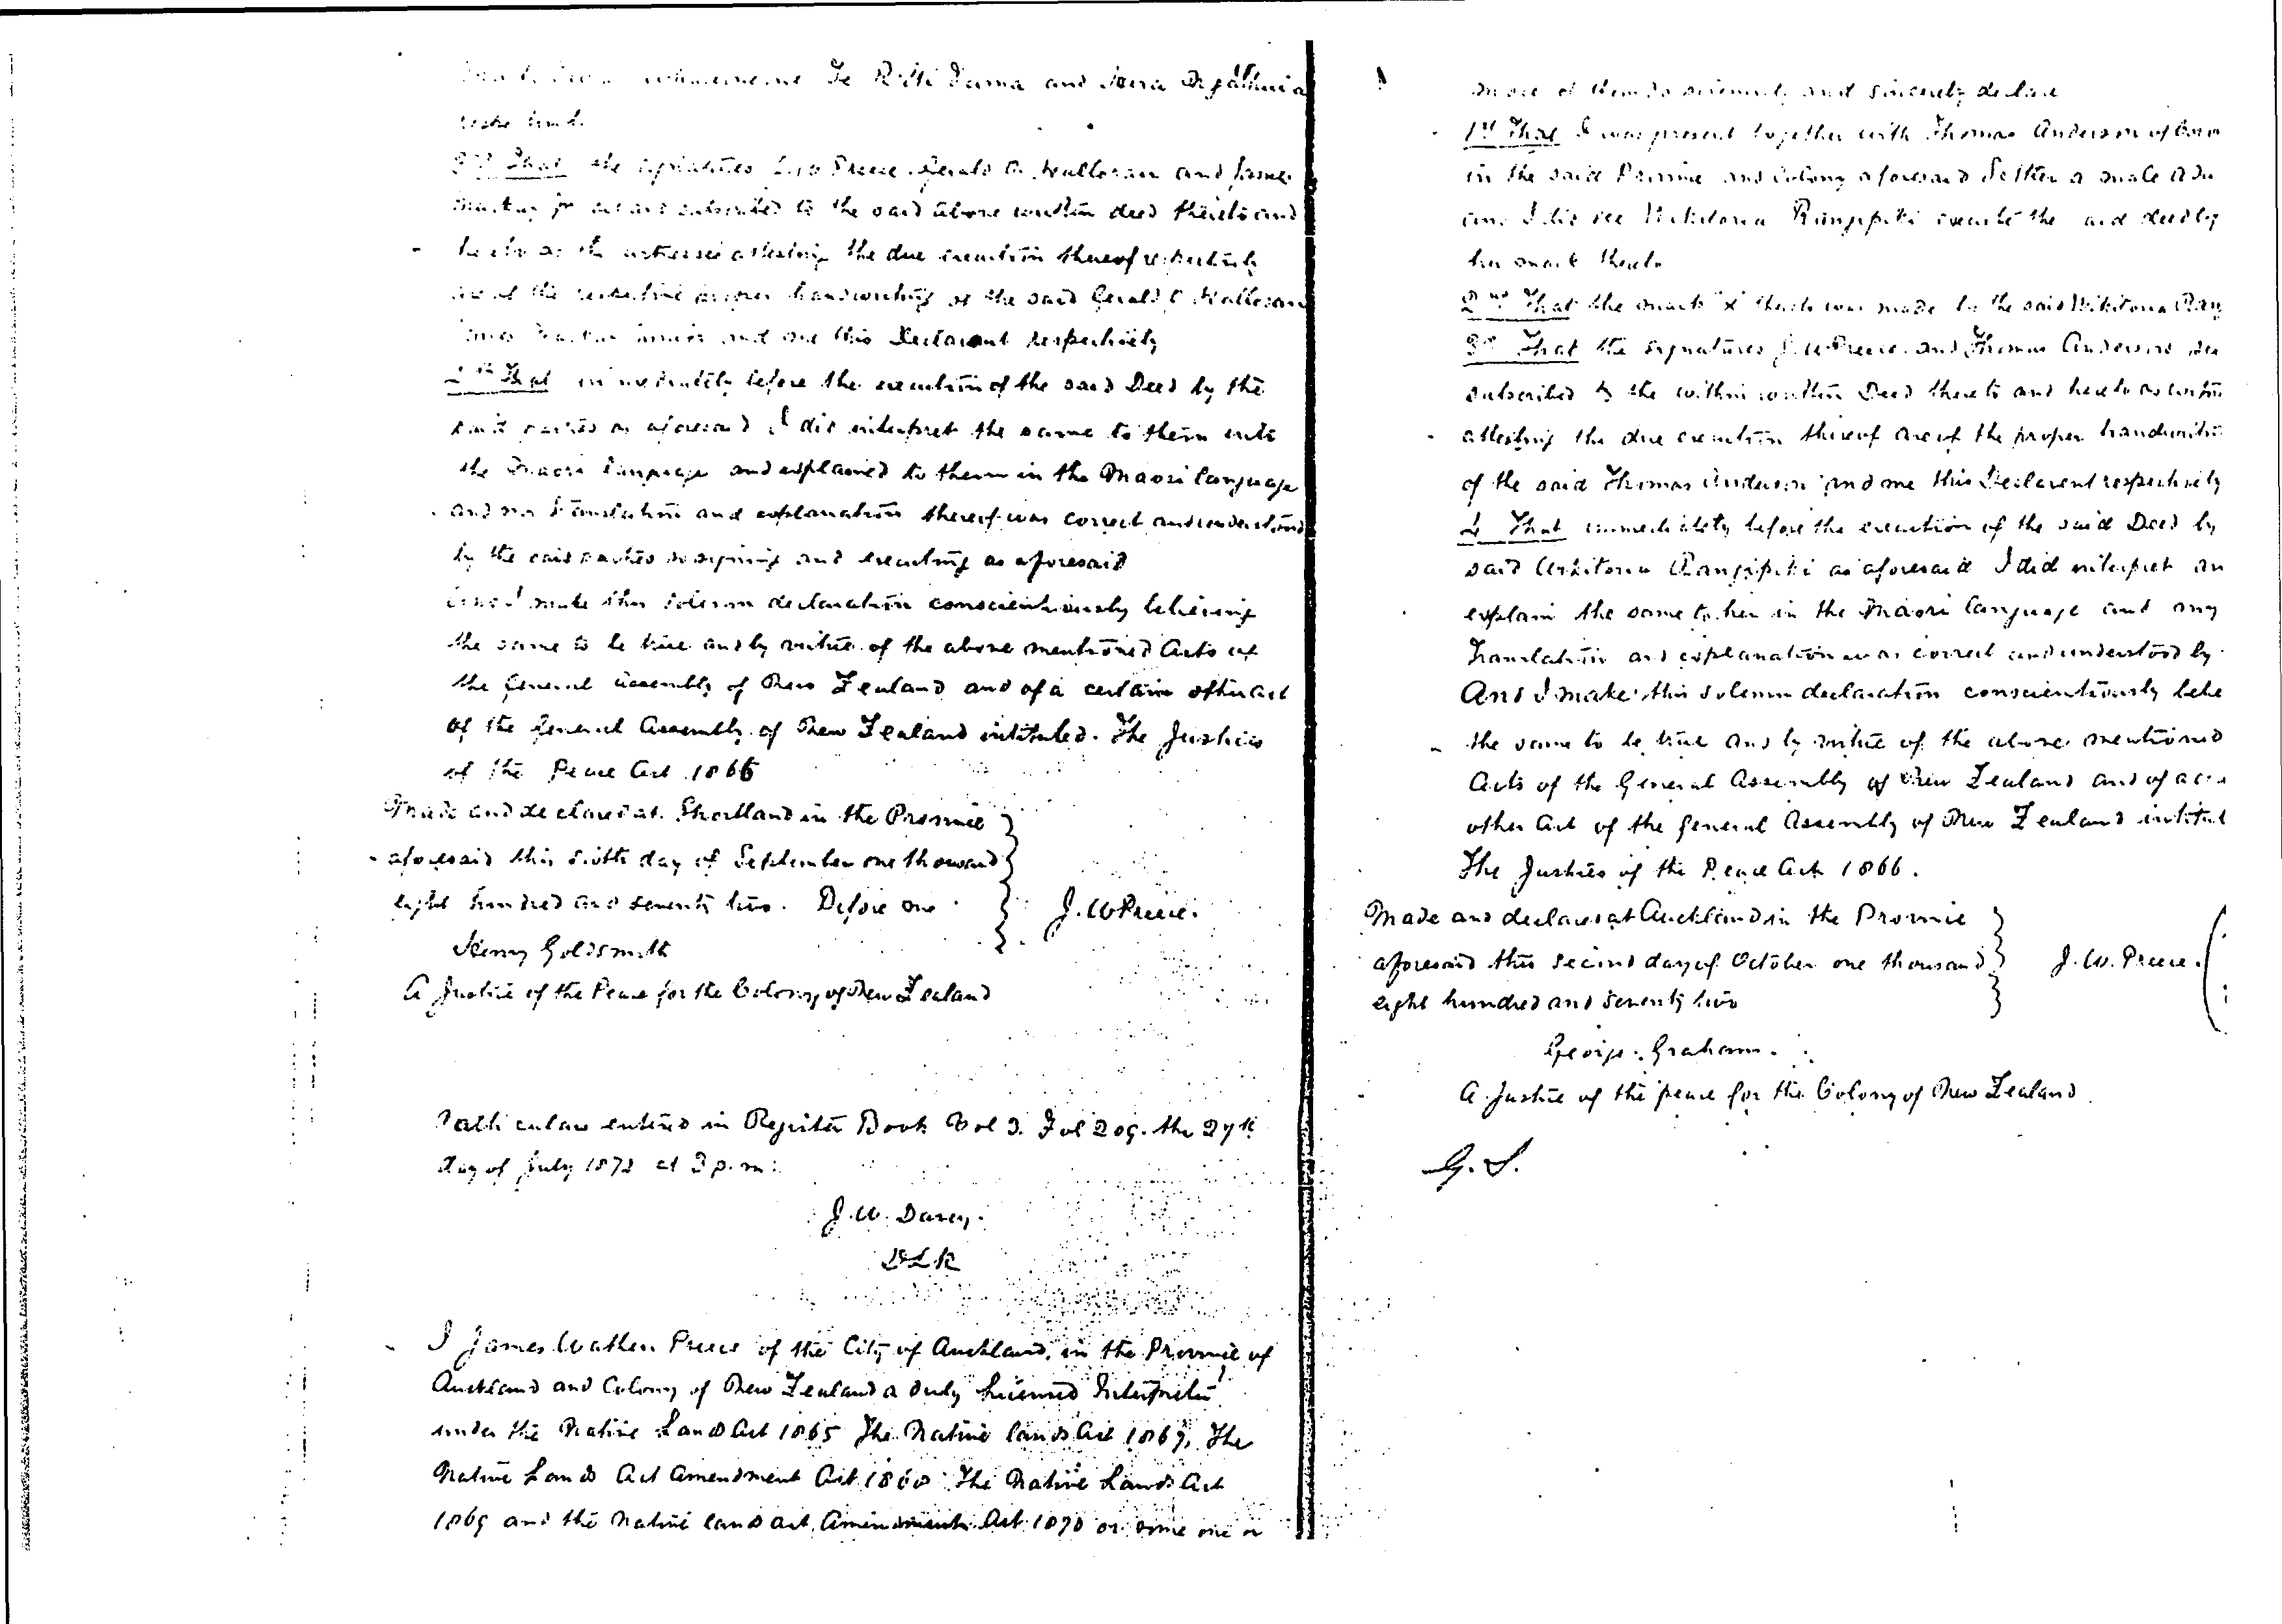 Te Riti Tuma and Mera
3rd That the signatures J W Preece Gerald O. Halloran and James
Mackay jr subscribed to the said above written deed thereto and
hereto as the witnesses attesting the due execution thereof respectively
are of the respective proper handwriting of the said Gerald O Halloran
James Mackay junior and me this Declarant respectively
That immediately before the execution of the said Deed by the
said parties as aforesaid I did interpret the same to them into
the Maori language and explained to them in the Maori language
and my translation and explanation thereof was correct and understood
by the said parties so signing and executing as aforesaid
And I make this solemn declaration conscientiously believing
the same to be true and by virtue of the above mentioned Acts of
the General Assembly of New Zealand and of a certain other Act
of the General Assembly of New Zealand intituled. The Justices
of the Peace Act 1866
Made and declared at Shortland in the Province
aforesaid this sixth day of September one thousand
eight hundred and seventy two. Before me
J. W Preece.
Henry Goldsmith
A Justice of the Peace for the Colony of New Zealand
Particulars entered in Register Book Vol 3. Fol 209. the 27th
day of July 1872 at 3 p.m.
J. W.
DLR
I James Wathen Preece of the City of Auckland, in the Province of
Auckland and Colony of New Zealand a duly licensed Interpreter
under the Native Land Act 1865 The Native lands Act 1867, The
Native Lands Act Amendment Act 1868 The Native Lands Act
1869 and the Native lands act Amendment Act 1870 or some one or
more of them do solemnly and sincerely declare
1st That I was present together with Thomas Anderson of
in the said Province and Colony aforesaid Settler a male
and I did see Wikitoria Rangipiki execute the said deed by
her mark thereto
2nd That the mark "x" thereto was made by the said Wikitoria Rang
3rd That the signatures J. W Preece and Thomas Anderson
subscribed to the within written Deed thereto and hereto as
attesting the due execution thereof are of the proper handwriti
of the said Thomas Anderson and me this Declarent respectively
4 That immediately before the execution of the said Deed by
said Wikitoria Rangipiki as aforesaid I did interpret an
explain the same to her in the Maori language and my
Translation and explanation was correct and understood by
And I make this solemn declaration conscientiously belie
the same to be true and by virtue of the above mentioned
Acts of the General Assembly of New Zealand and of a
other Act of the General Assembly of New Zealand intitul
The Justices of the Peace Act 1866.
Made and declared at Auckland in the Province
aforesaid this second day of October one thousand
J. W. Preece.
eight hundred and seventy two
George Graham.
A Justice of the peace for the Colony of New Zealand
G. S.